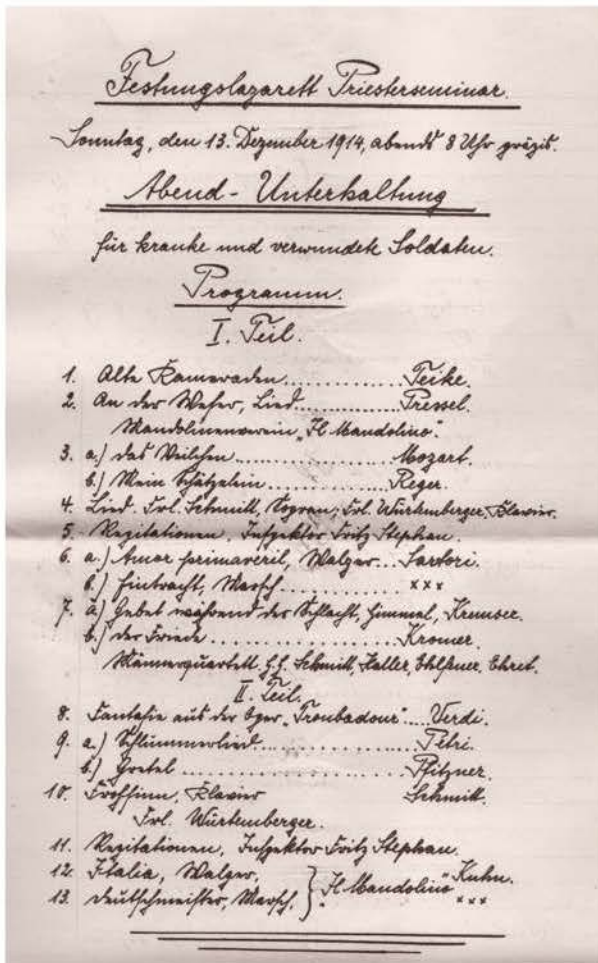 Festungslazarett Priesterseminar.
Sonntag, den 13. Dezember 1914, abends 8 Uhr präzis.
Abend-Unterhaltung
für kranke und verwundete Soldaten.
Programm.
I. Teil.
1. Alte Kameraden............Teike.
2. An der Weser, Lied............Pressel.
Mandolinenverein „Il Mandolino“.
3. a.) Das Veilchen............Mozart.
b.) Mein Schätzelein............Reger.
4. Lied. Frl. Schmitt, Sopran; Frl. Würtemberger, Klavier.
5. Rezitationen, Inspektor Fritz Stephan.
6. a.) Amor primaveril, Walzer...Sartori.
b.) Eintracht, Marsch............xxx
7. a) Gebet während der Schlacht, Himmel, Kremser.
b.) Der Friede............Kromer.
Männerquartett. H.H. Schmitt, Haller, Ehret.
II. Teil.
8. Fantasie aus der Oper „Troubadour“....Verdi.
9. a.) Schlummerlied............Petri.
b.) Gretel............Pfitzner.
10. Frohsinn, Klavier Schmitt.
Frl. Würtemberger.
11. Rezitationen, Inspektor Fritz Stephan.
12. Italia, Walzer, } „Il Mandolino“ Kuhn.
13. Deutschmeister, Marsch, xxx